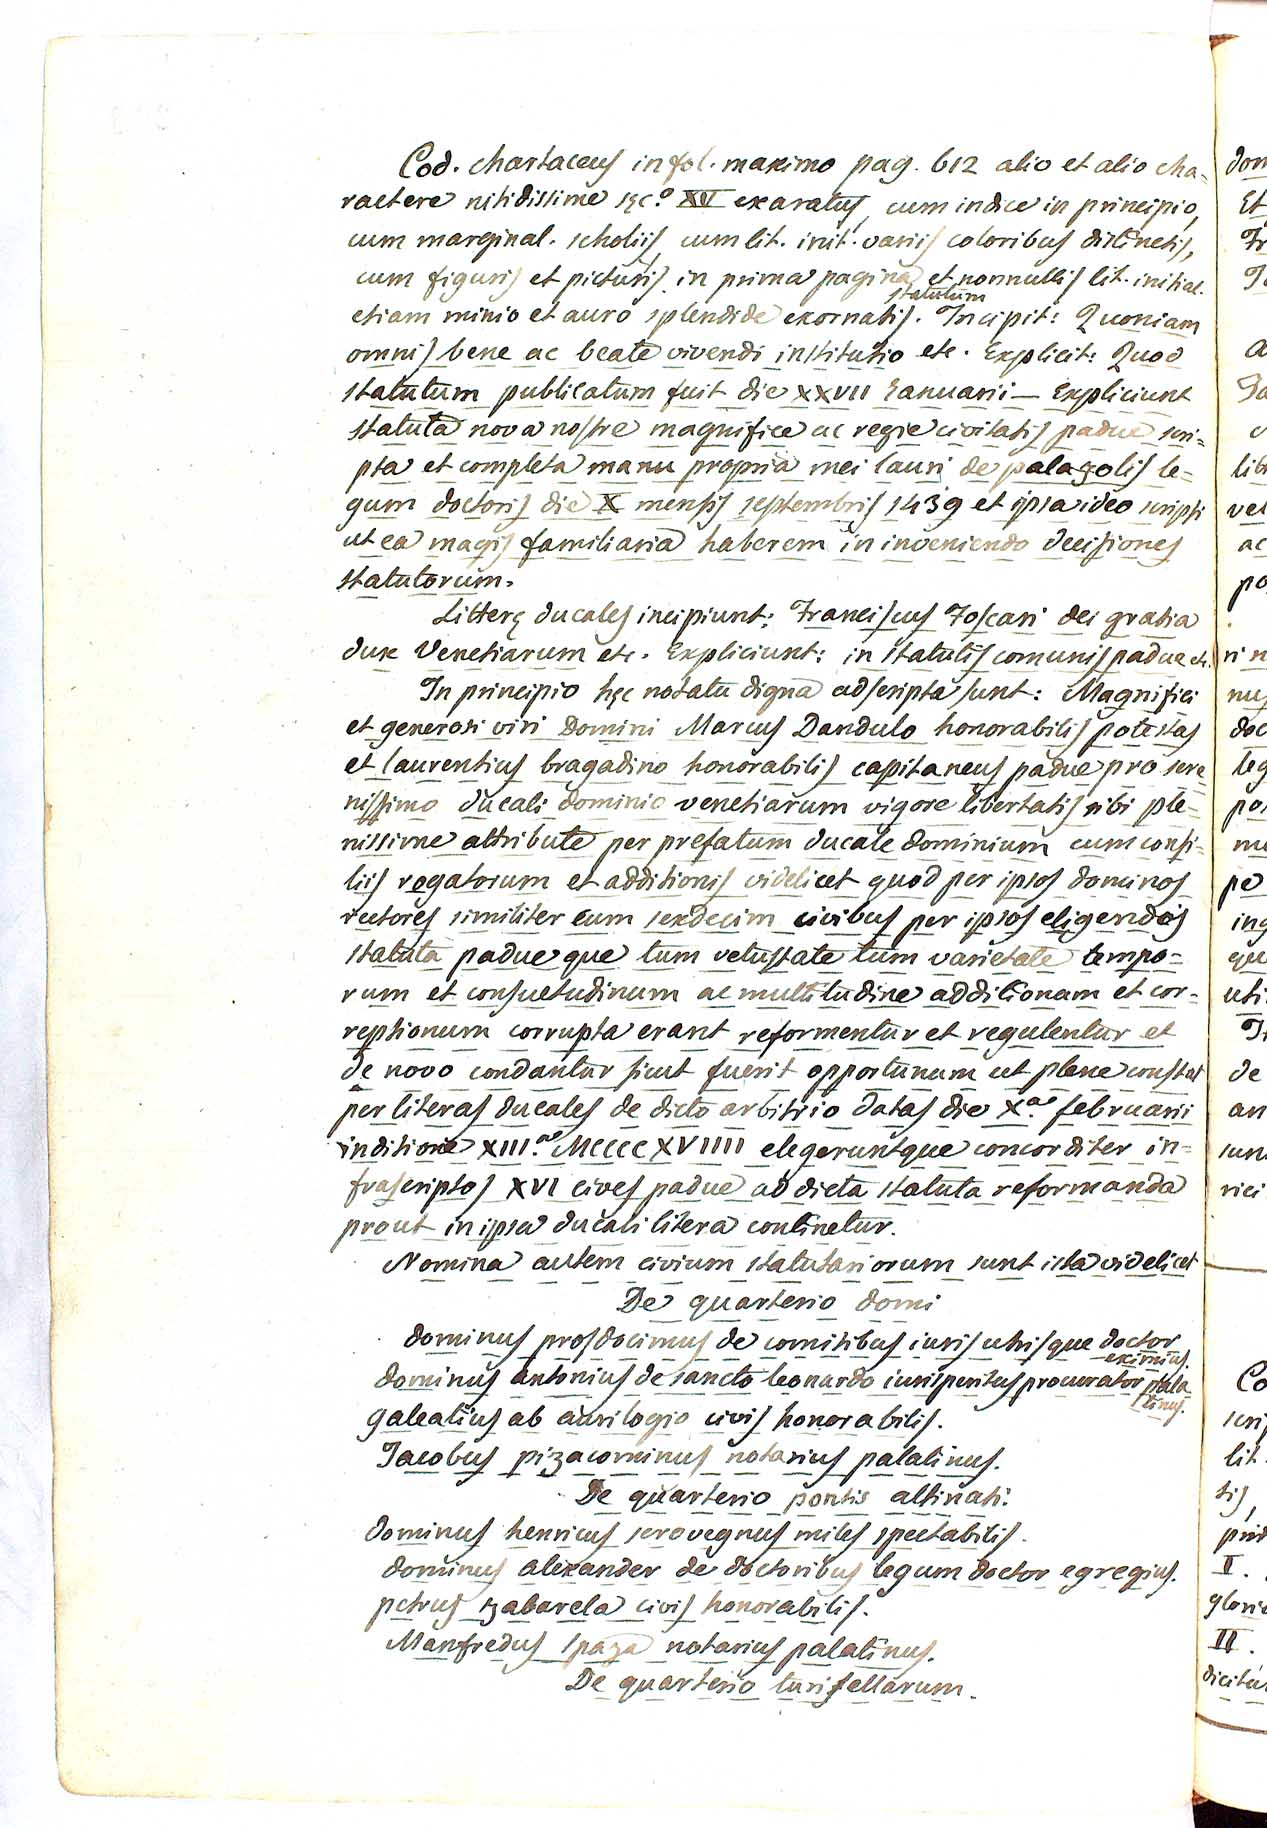 Cod. chartaceus in fol. maximo pag. 612 alio et alio cha=
ractere nitidissime sęc.º XV exaratus, cum indice in principio,
cum marginal. scholiis, cum lit. init. variis coloribus distinctis,
cum figuris et picturis in prima pagina et nonnullis lit. initial.
statutum
etiam minio et auro splendide exornatis. Incipit: Quoniam
omnis bene ac beate vivendi institutio etc. Explicit: Quod
statutum publicatum fuit die XXVII Ianuarii — Expliciunt
statuta nova nostre magnifice ac regie civitatis padue scri=
pta et completa manu propria mei lauri de palazolis le=
gum doctoris die X mensis septembris 1439 et ipsa ideo scripsi
ut ea magis familiaria haberem in inveniendo decisiones
statutorum.
Litterę ducales incipiunt: Franciscus Foscari dei gratia
dux Venetiarum etc. Expliciunt: in statutis comunis padue etc.
In principio hęc notatu digna adscripta sunt: Magnifici
et generosi viri Domini Marcus Dandulo honorabilis potestas
et laurentius bragadino honorabilis capitaneus padue pro sere
nissimo ducali dominio venetiarum vigore libertatis sibi ple=
nissime attribute per prefatum ducale dominium cum consi=
liis rogatorum et additionis videlicet quod per ipsos dominos
rectores similiter cum sexdecim civibus per ipsos eligendos
statuta padue que tum vetustate tum varietate tempo=
rum et consuetudinum ac multitudine additionam et cor=
reptionum corrupta erant reformentur et regulentur et
de novo condantur sicut fuerit opportunum ut plene constat
per literas ducales de dicto arbitrio datas die X.ª februarii
inditione XIII.ª MCCCCXVIIII elegeruntque concorditer in=
frascriptos XVI cives padue ad dicta statuta reformanda
prout in ipsa ducali litera continetur.
Nomina autem civium statutariorum sunt ista videlicet
De quarterio domi
dominus prosdocimus de comitibus iuris utrisque doctor
eximius.
dominus antonius de sancto leonardo iurisperitus procurator pala
tinus.
galeatius ab aurilogio civis honorabilis.
Jacobus pizacominus notarius palatinus.
De quarterio pontis altinati:
dominus henricus scrovegnus miles spectabilis.
dominus alexander de doctoribus legum doctor egregius.
petrus zabarela civis honorabilis.
Manfredus spaza notarius palatinus.
De quarterio turisellarum.